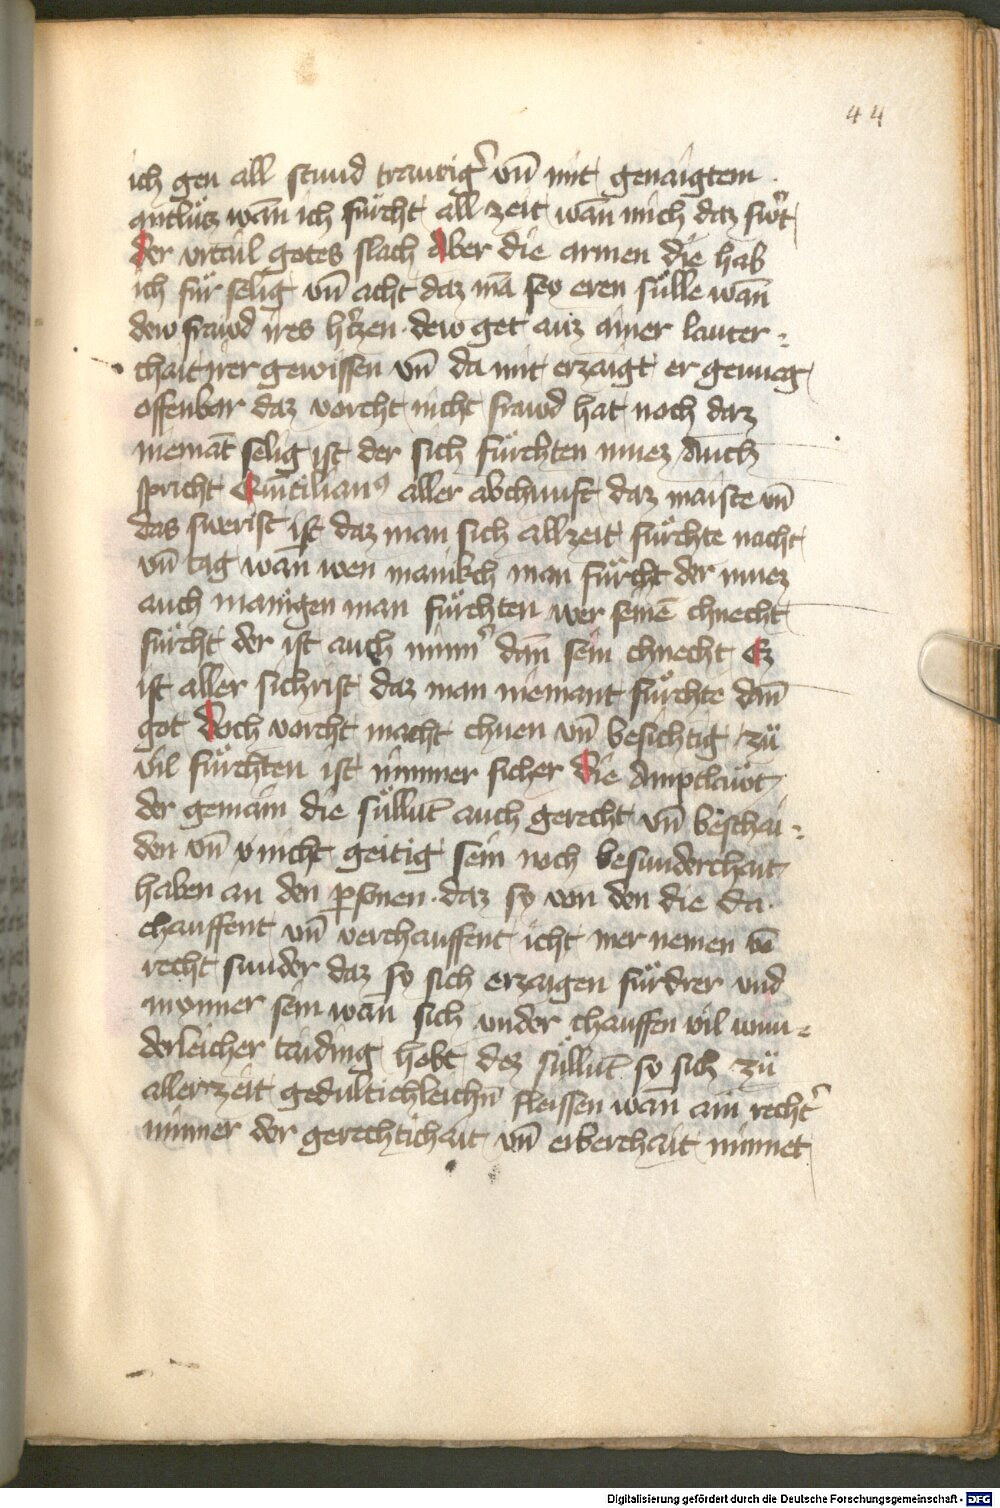 44
ich gen all stund traurigˀ vn̄ mit genaigtem
antlütz wan̄ ich fürcht all zeit wan̄ mich daz swˀt
der vrtail gotes slach Aber die armen die hab
ich für selig vn̄ acht daz mā sey eren sülle wan̄
dew frawd ires hˀtzen · dew get auz ainer lauter :
chait irer gewissen vn̄ da mit erzaigt er genueg
offenbar daz vorcht nicht frawd hat noch daz
niemāt selig ist der sich fürchten muez Auch
spricht Qui͂tilianꝰ aller abchunft daz maiste vn̄
das swerist ist daz man sich allzeit fürchte nacht
vn̄ tag wan̄ wen manikch man fürcht der muez
auch manigen man fürchten wer seinē chnecht
fürcht der ist auch minnˀ dan̄ sein chnecht Ez
ist aller sichrist daz man niemant fürchte dan̄
got Doch vorcht macht chuen vn̄ besichtig zü
vil fürchten ist nimmer sicher Die Amptläwt
der gemain die süllut̄ auch gerecht vn̄ beschai :
den vn̄ v nicht geitig sein noch besunderchait
haben an den ꝑsonen · daz sy von den die da
chauffent vn̄ verchauffent icht mer nemen vō
recht sunder daz sy sich erzaigen fürdrer vnd
mynner sein wan̄ sich vnder chauffen vil wun :
derleicher taiding hebt dez süllut̄ sy sich zü
aller zeit gedultichleichn̄ fleissen wan̄ ain rechtˀ
minner der gerechtichait vn̄ erberchait minnet
Digitalisierung gefördert durch die Deutsche Forschungsgemeinschaft - DFG